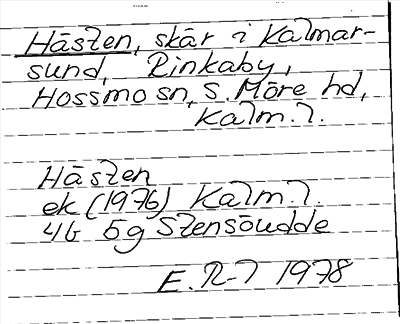 Hästen, skär i Kalmar-
sund, Rinkaby,
Hossmo sn, S. Möre hd,
Kalm. l.
Hästen
ek (1976) Kalm. l.
4G 5g Stensöudde
E. R-l 1978